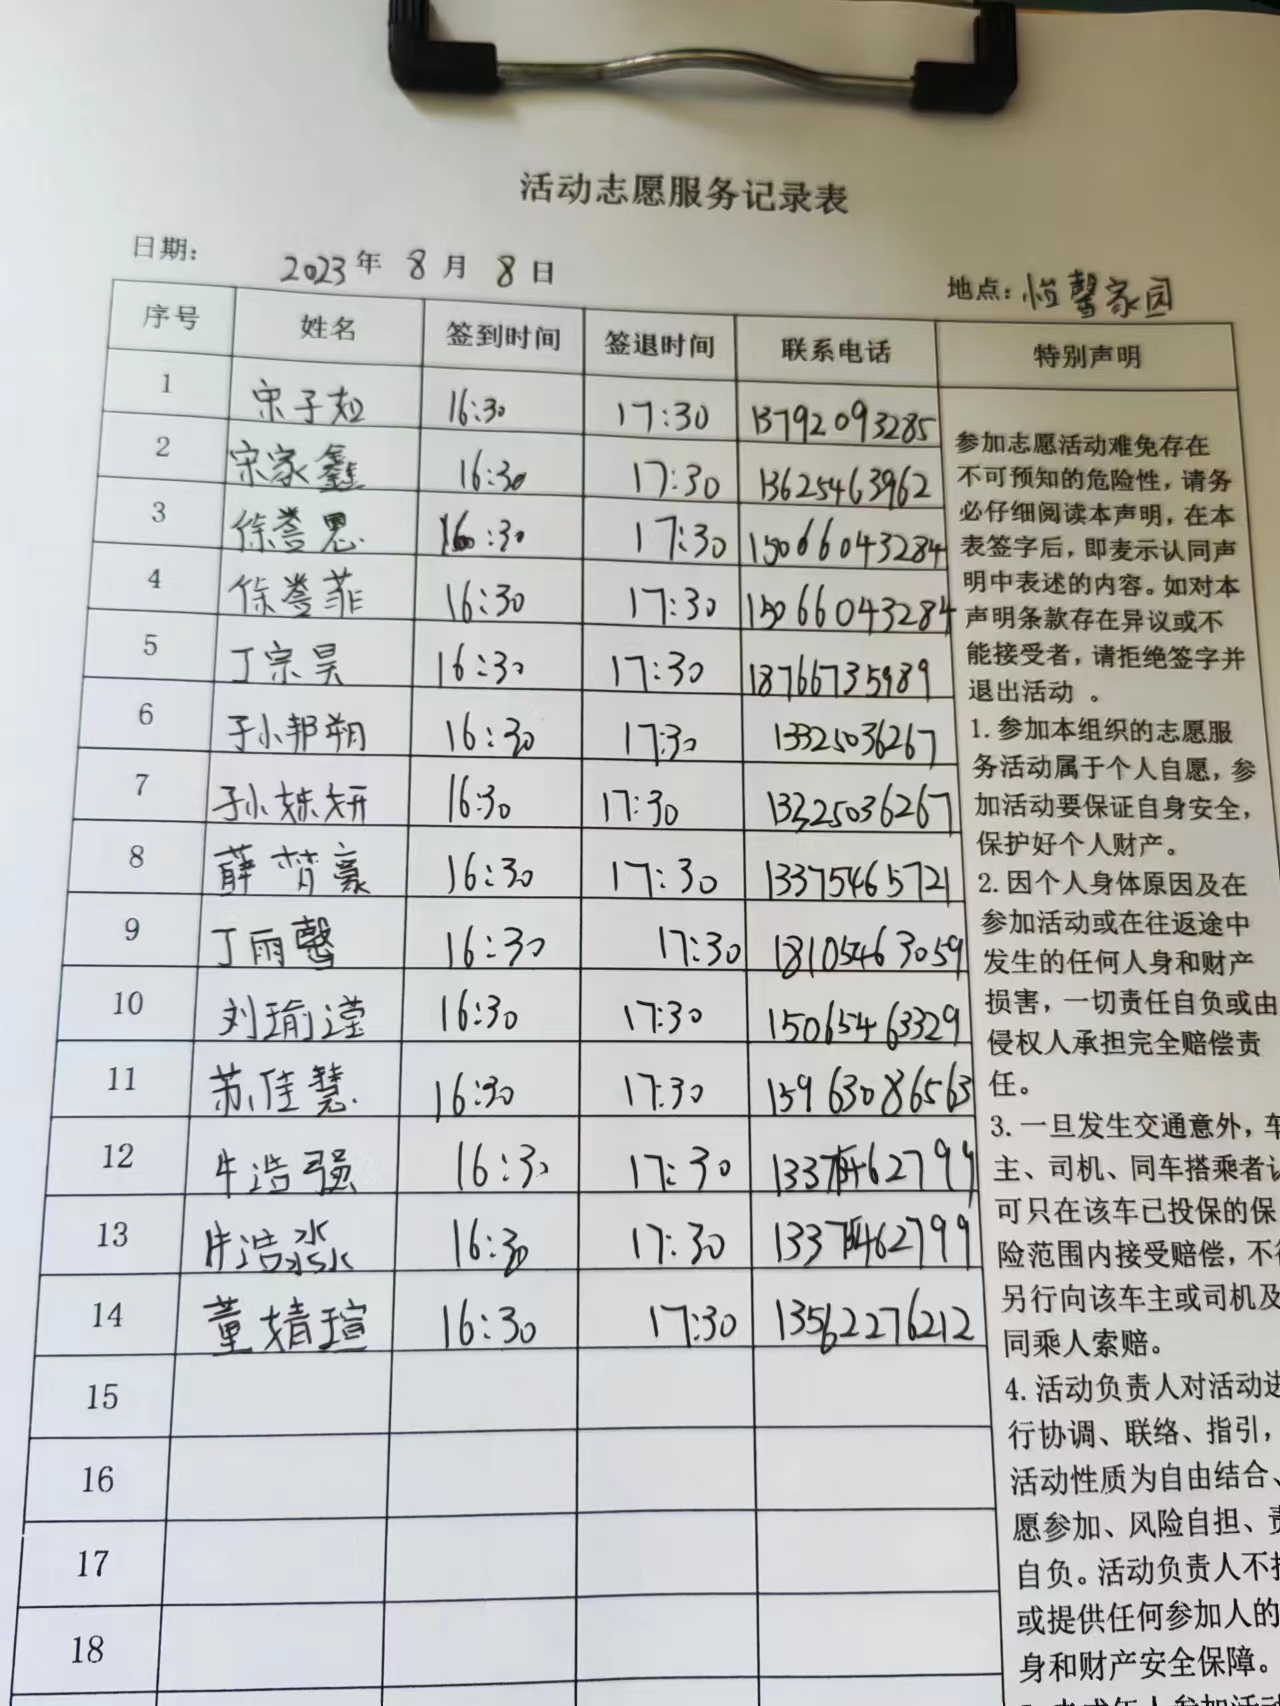 活动志愿服务记录表
日期: 2023年 8月 8日
地点: 恒馨家园
序号 姓名 签到时间 签退时间 联系电话 特别声明
1 宋子超 16:30 17:30 13792093285
2 宋家鑫 16:30 17:30 13625463962
3 徐誉恩 16:30 17:30 15066043284
4 徐誉菲 16:30 17:30 15066043284
5 丁宗昊 16:30 17:30 18766735989
6 孙邦朔 16:30 17:30 13325036267
7 孙姝妍 16:30 17:30 13325036267
8 薛梦豪 16:30 17:30 13375465721
9 丁雨馨 16:30 17:30 18105463059
10 刘瑜滢 16:30 17:30 15065463329
11 苏佳慧 16:30 17:30 15963086563
12 牛浩强 16:30 17:30
13 牛浩淼 16:30 17:30
14 董婧瑄 16:30 17:30 13562276212
15
16
17
18
参加志愿活动难免存在
不可预知的危险性，请务
必仔细阅读本声明，在本
表签字后，即麦示认同声
明中表述的内容。如对本
声明条款存在异议或不
能接受者，请拒绝签字并
退出活动 。
1.参加本组织的志愿服
务活动属于个人自愿，参
加活动要保证自身安全，
保护好个人财产。
2.因个人身体原因及在
参加活动或在往返途中
发生的任何人身和财产
损害，一切责任自负或由
侵权人承担完全赔偿责
任。
3.一旦发生交通意外，车
主、司机、同车搭乘者
可只在该车已投保的保
险范围内接受赔偿，不
另行向该车主或司机及
同乘人索赔。
4.活动负责人对活动进
行协调、联络、指引，
活动性质为自由结合、
愿参加、风险自担、责
自负。活动负责人不
或提供任何参加人的
身和财产安全保障。